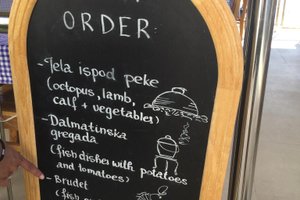 ORDER:
-Jela ispod peke
(octopus, lamb,
calf + vegetables)
-Dalmatinska
gregada
(fish dishes with potatoes
and tomatoes)
-Brudet
(fish